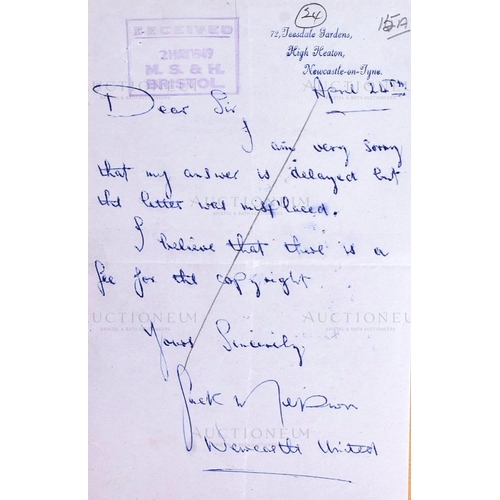 24
15A
RECEIVED
2 MAY 1949
M. S. & H.
BRISTOL
72, Teesdale Gardens,
High Heaton,
Newcastle-on-Tyne.
April 24TH
Dear Sir
I am very sorry
that my answer is delayed but
the letter was missplaced.
I believe that there is a
fee for the copyright.
Yours Sincerely,
Jack
Newcastle United
AUCTIONEUM
AUCTIONEUM
AUCTIONEUM